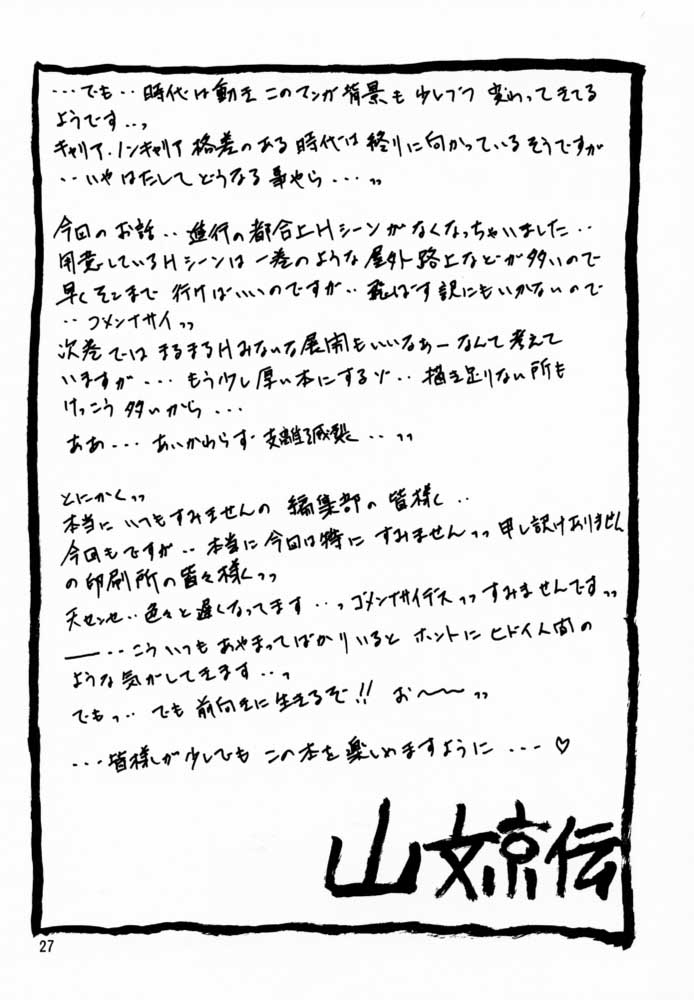 ・・・でも・・時代は動き このマンガ背景も少しづつ 変わってきてる
ようです・・っ
キャリア．ノンキャリア 格差のある時代は終りに向かっているそうですが
・・いや はたして どうなる事やら・・・〃
今回のお話・・進行の都合上Hシーンがなくなっちゃいました・・
用意しているHシーンは一巻のような屋外路上などが多いので
早くそこまで行ければいいのですが・・飛ばす訳にもいかないので
・・ゴメンナサイ〃
次巻では まるまるHみたいな展開もいいなぁーなんて考えて
いますが・・・もう少し厚い本にするゾ・・描き足りない所も
けっこう多いから・・・
ああ・・・あいかわらず 支離滅裂・・〃
とにかく〃
本当に いつもすみませんの 編集部の皆様く・・
今回もですが・・本当に今回は特に すみません〃 申し訳けありません
の印刷所の皆々様く〃
天センセ・・色々と遅くなってます・・っゴメンナサイデス〃すみませんです〃
―・・こういつもあやまってばかりいると ホントに ヒドイ人間の
ような気がしてきます・・っ
でもっ・・でも前向きに生きるぞ!! お〜〜〃
・・・皆様しが少しでも この本を楽しめますように・・・♡
山文京伝
27